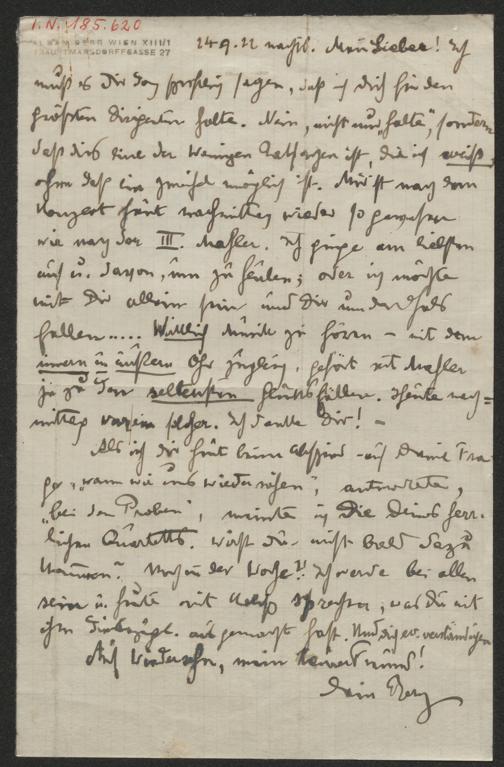 I.N. 185.620
ALBAN BERG WIEN XIII/1
TRAUTTMANSDORFFGASSE 27
24.9.22 nachts. Mein Lieber! Ich
muß es Dir doch sagen, daß ich dich für den
größten Dirigenten halte. Nein, nicht nur „halte", sondern
daß dies eine der wenigen Tatsachen ist, die ich weiß,
ohne daß ein Zweifel möglich ist. Mir ist nach dem
Konzert heut nachmittag wieder so gewesen
wie nach der III. Mahler. Ich ginge am liebsten
auf u. davon, um zu heulen; oder ich möchte
mit Dir allein sein und Dir um den Hals
fallen..... Wirklich Musik zu hören – mit dem
innern u äußern Ohr zugleich, gehört seit Mahler
ja zu den seltensten Glücksfällen. Heute nach=
mittag war ein solcher. Ich danke Dir! –
Als ich dir heut beim Abschied auf Deine Fra-
ge, „wann wir uns wiedersehen", antwortete,
„bei den Proben", meinte ich die Deines herr-
lichen Quartetts. Wirst du nicht bald dazu
kommen? Noch in der Woche?! Ich werde bei allen
sein u. heute mit sprechen, was Du mit
ihm diesbezügl. ausgemacht hast. Und dich ev. verständigen
Auf Wiedersehn, mein Freund!
Dein Berg